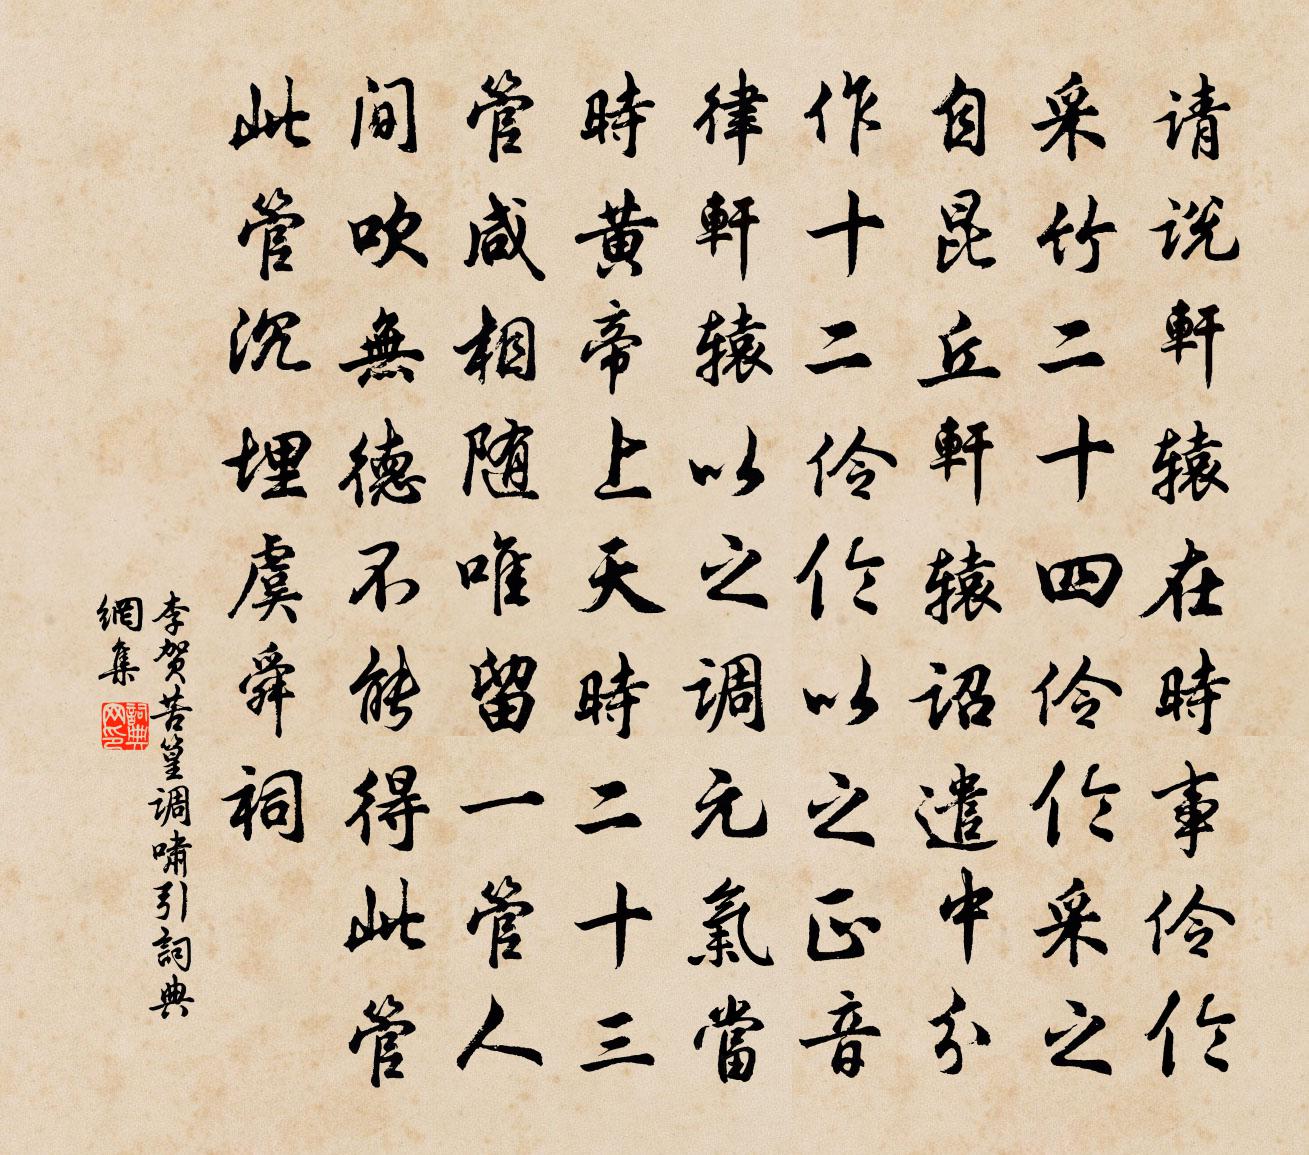 请説軒辕在時事伶伦
采竹二十四伶伦采之
自昆丘軒辕诏遣中分
作十二伶伦以之正音
律軒辕以之调元氣當
時黄帝上天時二十三
管咸相随唯留一管人
间吹無德不能得此管
此管沉埋虞舜祠
李贺苦篁调啸引詞典
網集
詞典网印